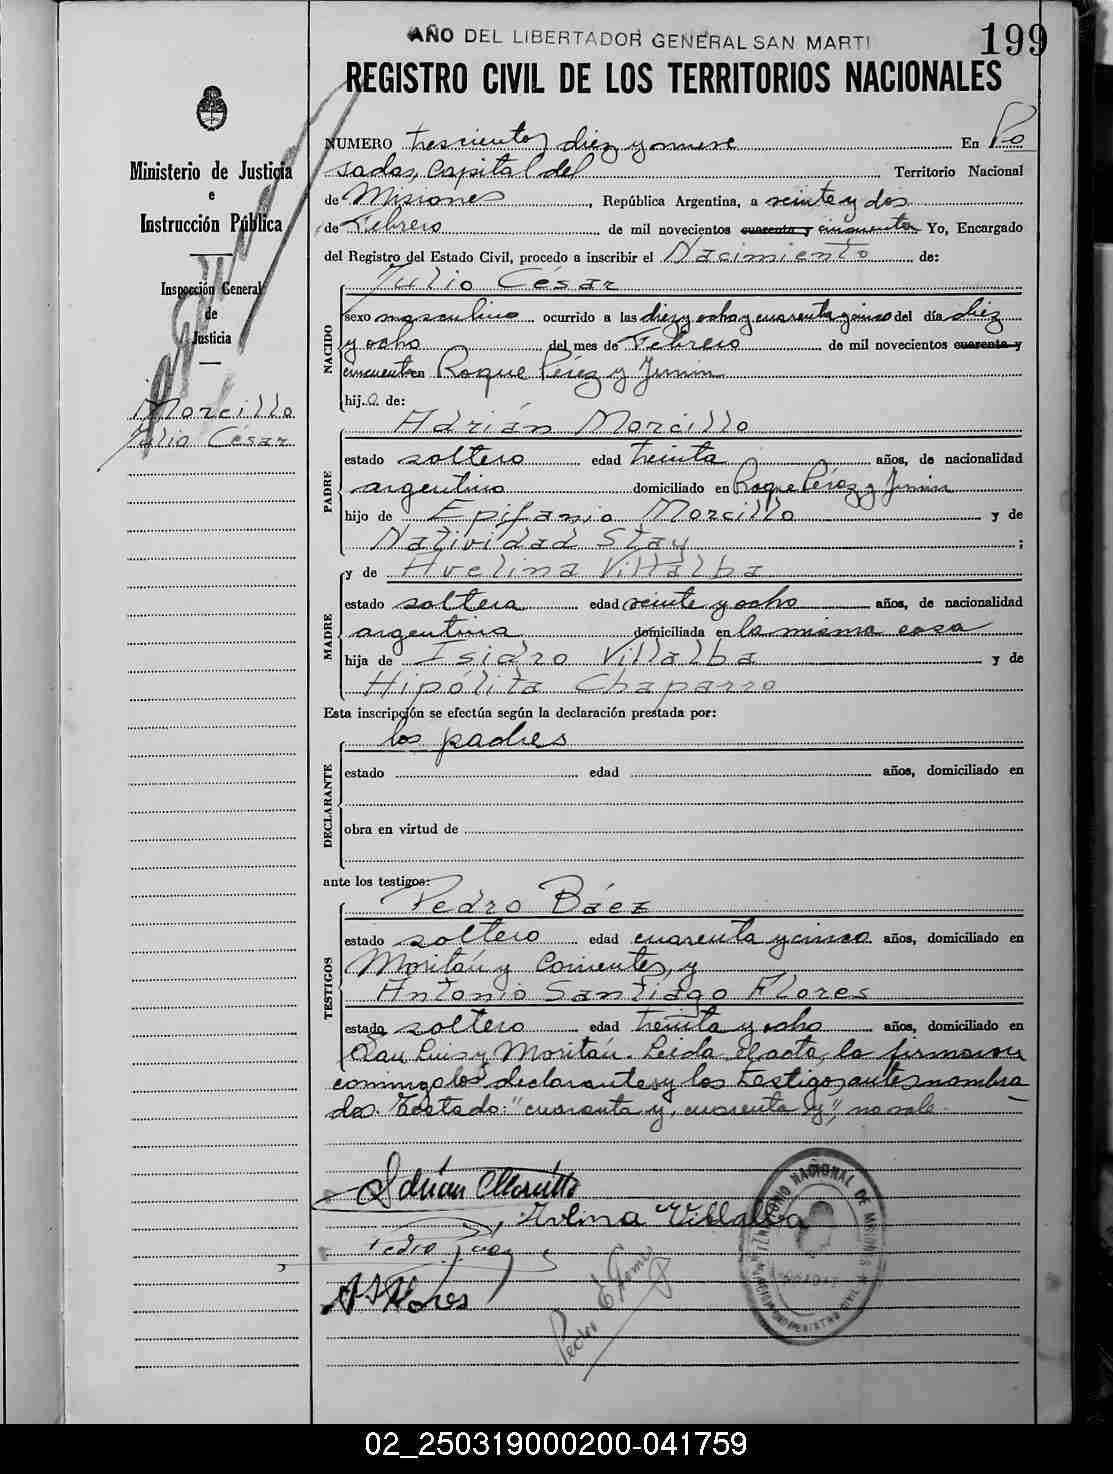 AÑO DEL LIBERTADOR GENERAL SAN MARTI
199
REGISTRO CIVIL DE LOS TERRITORIOS NACIONALES
Ministerio de Justicia
e
Instrucción Pública
Inspección General
de
Justicia
Morcillo
Julio César
NUMERO trescientos diez y nueve En Po
sadas, Capital del Territorio Nacional
de Misiones, República Argentina, a veinte y dos
de Febrero de mil novecientos cuarenta y cincuenta Yo, Encargado
del Registro del Estado Civil, procedo a inscribir el Nacimiento de:
NACIDO
Julio César
sexo masculino ocurrido a las diez y ocho y cuarenta y cinco del día diez
y ocho del mes de Febrero de mil novecientos cuarenta y
cincuenta en Roque Pérez y Junin
hij.o de:
PADRE
Adrián Morcillo
estado soltero edad treinta años, de nacionalidad
argentino domiciliado en Roque Pérez y Junin
hijo de Epifanio Morcillo y de
Natividad Stay;
MADRE
y de Avelina Villalba
estado soltera edad veinte y ocho años, de nacionalidad
argentina domiciliada en la misma casa
hija de Isidro Villalba y de
Hipólita Chaparro
Esta inscripción se efectúa según la declaración prestada por:
DECLARANTE
los padres
estado edad años, domiciliado en
obra en virtud de
ante los testigos:
TESTIGOS
Pedro Báez
estado soltero edad cuarenta y cinco años, domiciliado en
Moritán y Corrientes, y
Antonio Santiago Flores
estado soltero edad treinta y ocho años, domiciliado en
San Luis y Moritán. Leida el acta, la firmaron
conmigo los declarantes y los testigos antes nombra
dos. Testado: "cuarenta y, cuarenta y", no vale.
Adrián Morcillo
Avelina Villalba
Pedro Baez
A S Flores
02_250319000200-041759